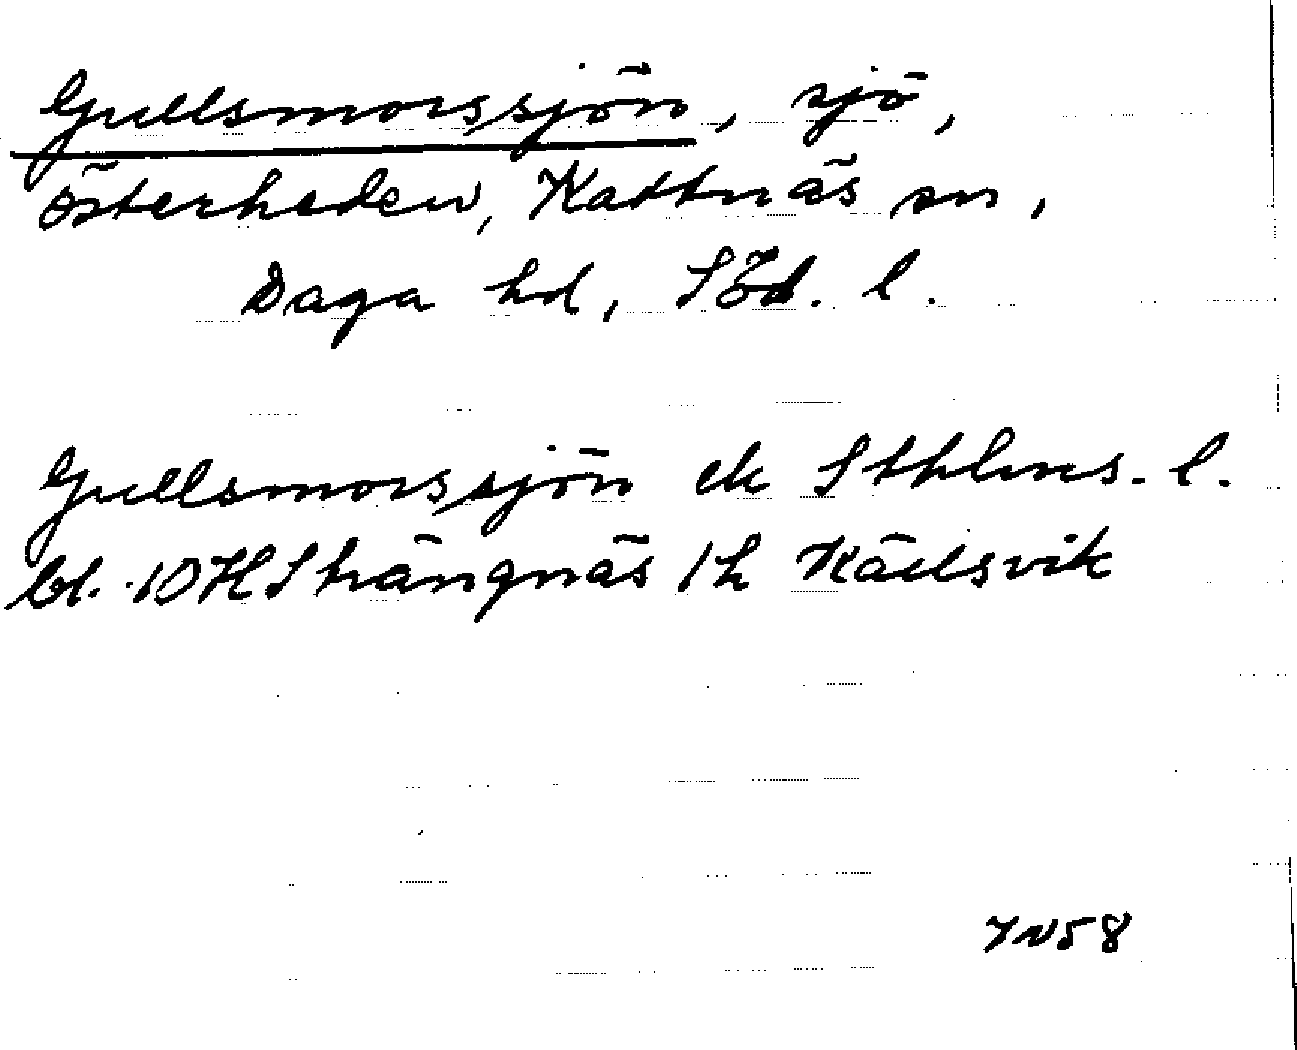 Gullsmorssjön, sjö,
Österheden, Kattnäs sn,
Daga hd, Söd. l.
Gullsmorssjön ek Sthlms. l.
bl. 10H Strängnäs 1h
7N58